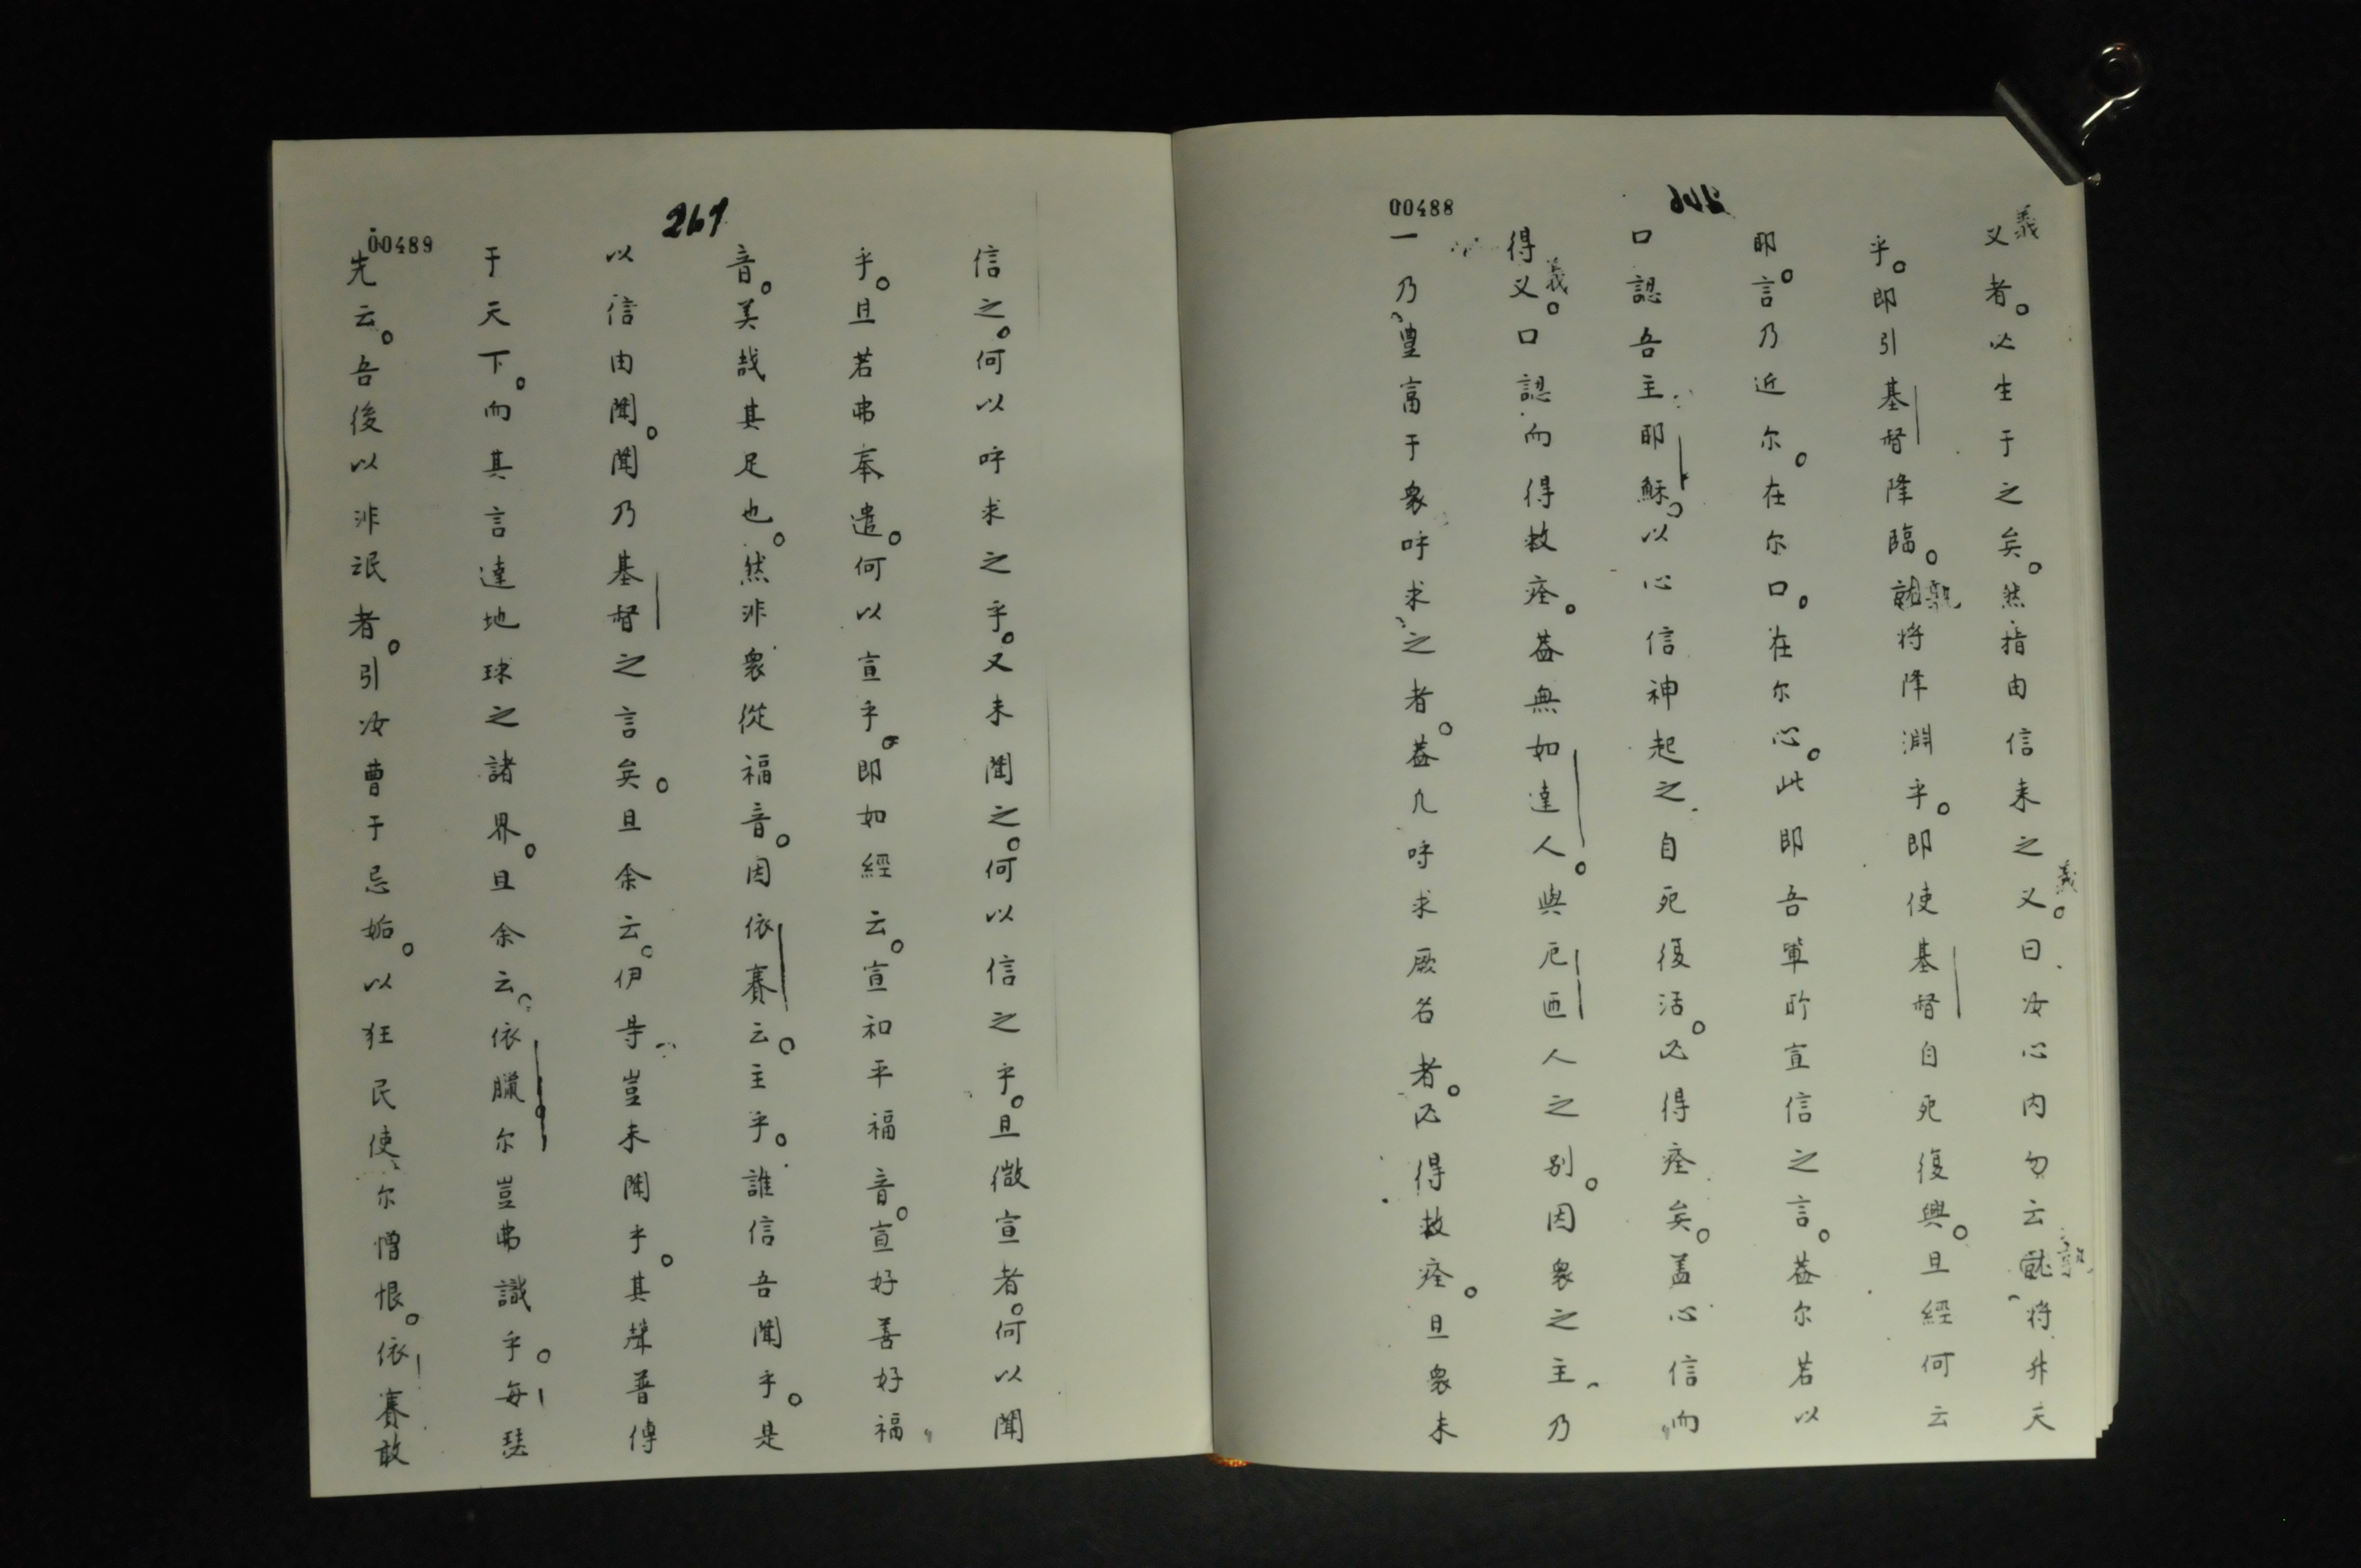 00488
义者。必生于之矣。然指由信来之义。曰汝心内勿云孰将升天
義
義
乎。即引基督降臨。孰将降淵乎。即使基督自死復興。且經何云
耶。言乃近尔。在尔口。在尔心。此即吾軰所宣信之言。蓋尔若以
口認吾主耶穌。以心信神起之自死復活。必得痊矣。盖心信而
得义。口認而得救痊。蓋無如達人。與厄西人之别。因衆之主乃
義
一乃豊富于衆呼求之者。蓋凡呼求厥名者。必得救痊。且衆未
267
00489
信之。何以呼求之乎。又未聞之。何以信之乎。且微宣者。何以聞
乎。且若弗奉遣。何以宣乎。即如經云。宣和平福音。宣好善好福
音。美哉其足也。然非衆從福音。因依賽云。主乎。誰信吾聞乎。是
以信由聞。聞乃基督之言矣。且余云。伊等豈未聞乎。其聲普傳
于天下。而其言達地球之諸界。且余云。依臘尔豈弗識乎。每瑟
先云。吾後以非氓者。引汝曹于忌妬。以狂民使尔憎恨。依賽敢